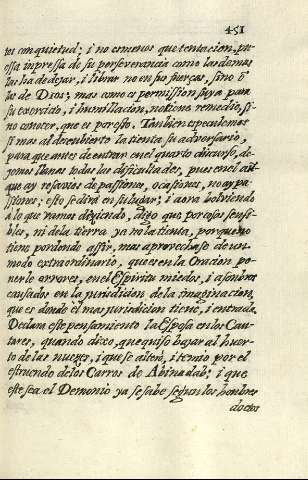 451
ros con quietud; i no creemos que tentacion, pu-
essa impressa de su perseverancia como las demas
las ha de dejar, i librar no en sus fuerças, sino ē
las de Dios; mas como es permission suya para
su exercicio, i humillacion, no tiene remedio, si-
no conocer, que es por esto. Tambien especulemos
si mas al descubierto la tienta su adversario,
para que antes de entrar en el quarto discurso, de-
jemos llanas todas las dificultades, pues en el aū-
que ay resavios de passiones, ocasiones, no ay pa-
ssiones; esto se dirá en su lugar; i aora bolviendo
a lo que vamos deçiendo, digo que por cosas sensi-
bles, ni de la tierra ya no la tienta, porque no
tiene por donde assir, mas aprovechase de un
modo extraordinario, que es en la Oracion po-
nerle errores, en el Espiritu miedos, i asombros
causados en la jurisdicion de la imaginacion,
que es donde el mas jurisdicion tiene, i entrada.
Declara este pensamiento la Esposa en los Can-
tares, quando dixo, que quiso bajar al huer-
to de las nuezes, i que se alteró, i temio por el
estruendo de los Carros de Abinadab; i que
este sea el Demonio ya se sabe segun los hombres
doctos